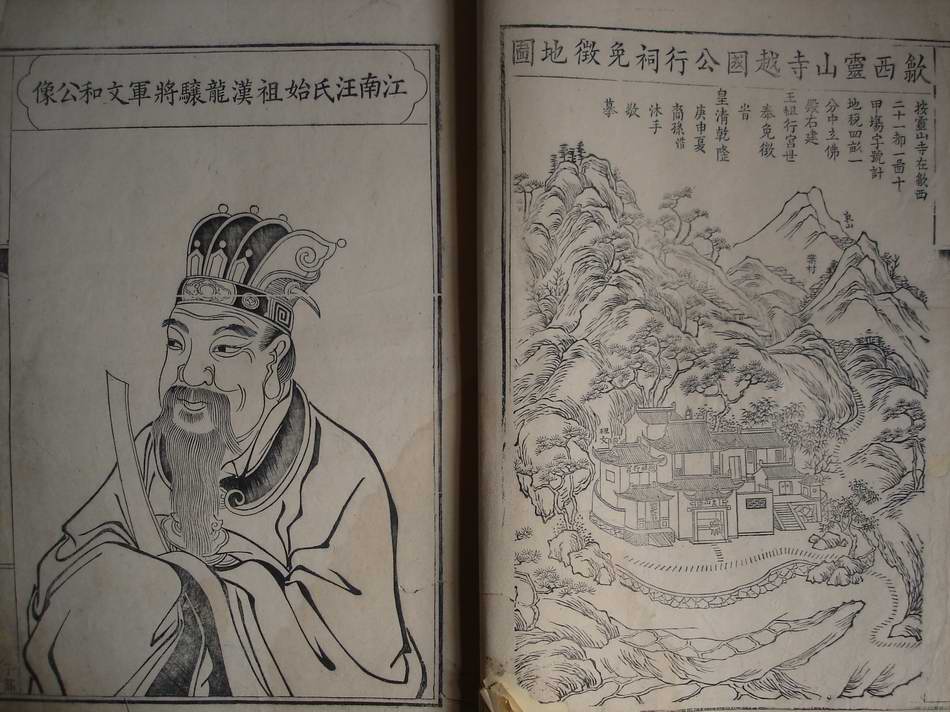 歙西靈山寺越國公行祠免徵地圖
按靈山寺在歙西
二十一都一啚十
甲場字號計
地稅四畝一
分中立佛
殿右建
王祖行宮世
奉免徵
皇清乾隆
庚申夏
裔孫
沐手
敬
摹
葉村
江南汪氏始祖漢龍驤將軍文和公像